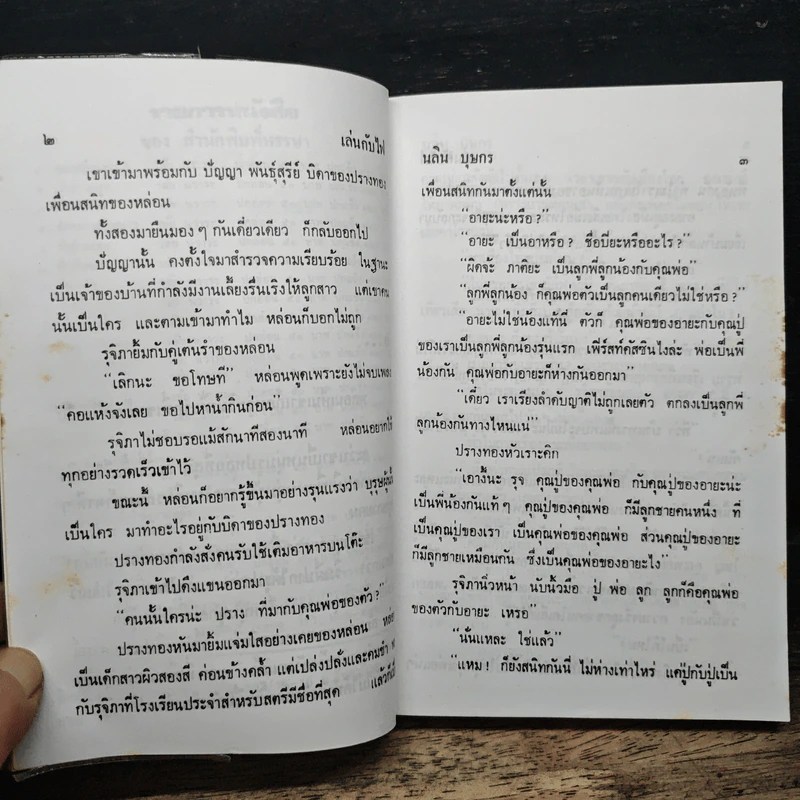 ๒ เล่นกับไฟ
เขาเข้ามาพร้อมกับ ปัญญา พันธุ์สุรีย์ บิดาของปรางทอง
เพื่อนสนิทของหล่อน
ทั้งสองมายืนมองๆ กันเดี๋ยวเดียว ก็กลับออกไป
ปัญญานั้น คงตั้งใจมาสำรวจความเรียบร้อย ในฐานะ
เป็นเจ้าของบ้านที่กำลังมีงานเลี้ยงรื่นเริงให้ลูกสาว แต่เขาคน
นั้นเป็นใคร และตามเข้ามาทำไม หล่อนก็บอกไม่ถูก
รุจิภายิ้มกับคู่เต้นรำของหล่อน
“เลิกนะ ขอโทษที” หล่อนพูดเพราะยังไม่จบเพลง
“คอแห้งจังเลย ขอไปหาน้ำกินก่อน”
รุจิภาไม่ชอบรอแม้สักนาทีสองนาที หล่อนอยากให้
ทุกอย่างรวดเร็วเข้าไว้
ขณะนี้ หล่อนก็อยากรู้ขึ้นมาอย่างรุนแรงว่า บุรุษผู้นั้น
เป็นใคร มาทำอะไรอยู่กับบิดาของปรางทอง
ปรางทองกำลังสั่งคนรับใช้เติมอาหารบนโต๊ะ
รุจิภาเข้าไปดึงแขนออกมา
“คนนั้นใครน่ะ ปราง ที่มากับคุณพ่อของตัว?”
ปรางทองหันมายิ้มแจ่มใสอย่างเคยของหล่อน
เป็นเด็กสาวผิวสองสี ค่อนข้างคล้ำ แต่เปล่งปลั่งและคมขำ
กับรุจิภาที่โรงเรียนประจำสำหรับสตรีมีชื่อที่สุด
นลิน บุษกร ๓
เพื่อนสนิทกันมาตั้งแต่นั้น
“อายะน่ะหรือ?”
“อายะ เป็นอาหรือ? ชื่อบียะหรืออะไร?”
“ผิดจ้ะ ภาติยะ เป็นลูกพี่ลูกน้องกับคุณพ่อ”
“ลูกพี่ลูกน้อง ก็คุณพ่อตัวเป็นลูกคนเดียวไม่ใช่หรือ?”
“อายะไม่ใช่น้องแท้นี่ ตัวก็ คุณพ่อของอายะกับคุณปู่
ของเราเป็นลูกพี่ลูกน้องรุ่นแรก เฟิร์สท์คัสซินไงล่ะ พ่อเป็นพี่
น้องกัน คุณพ่อกับอายะก็ห่างกันออกมา”
“เดี๋ยว เราเรียงลำดับญาติไม่ถูกเลยตัว ตกลงเป็นลูกพี่
ลูกน้องกันทางไหนแน่”
ปรางทองหัวเราะคิก
“เอางี้นะ รุจ คุณปู่ของคุณพ่อ กับคุณปู่ของอายะน่ะ
เป็นพี่น้องกันแท้ๆ คุณปู่ของคุณพ่อ ก็มีลูกชายคนหนึ่ง ที่
เป็นคุณปู่ของเรา เป็นคุณพ่อของคุณพ่อ ส่วนคุณปู่ของอายะ
ก็มีลูกชายเหมือนกัน ซึ่งเป็นคุณพ่อของอายะไง”
รุจิภานิ่วหน้า นับนิ้วมือ ปู่ พ่อ ลูก ลูกก็คือคุณพ่อ
ของตัวกับอายะ เหรอ”
“นั่นแหละ ใช่แล้ว”
“แหม! ก็ยังสนิทกันนี่ ไม่ห่างเท่าไหร่ แค่ปู่กับปู่เป็น